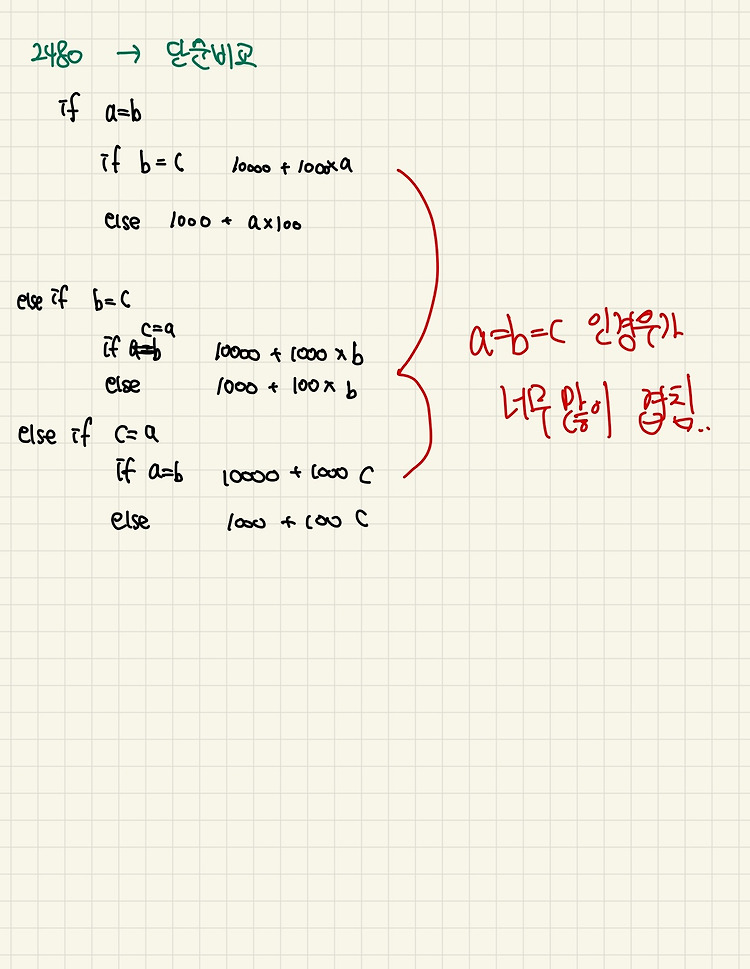 2480 → 단순비교
if a=b
if b=c 10000 + 1000×a
else 1000 + a×100
else if b=c
c=a
if a=b 10000 + 1000 × b
else 1000 + 100 × b
else if c=a
if a=b 10000 + 1000 c
else 1000 + 100 c
a=b=c 인경우가
너무 많이 겹침..